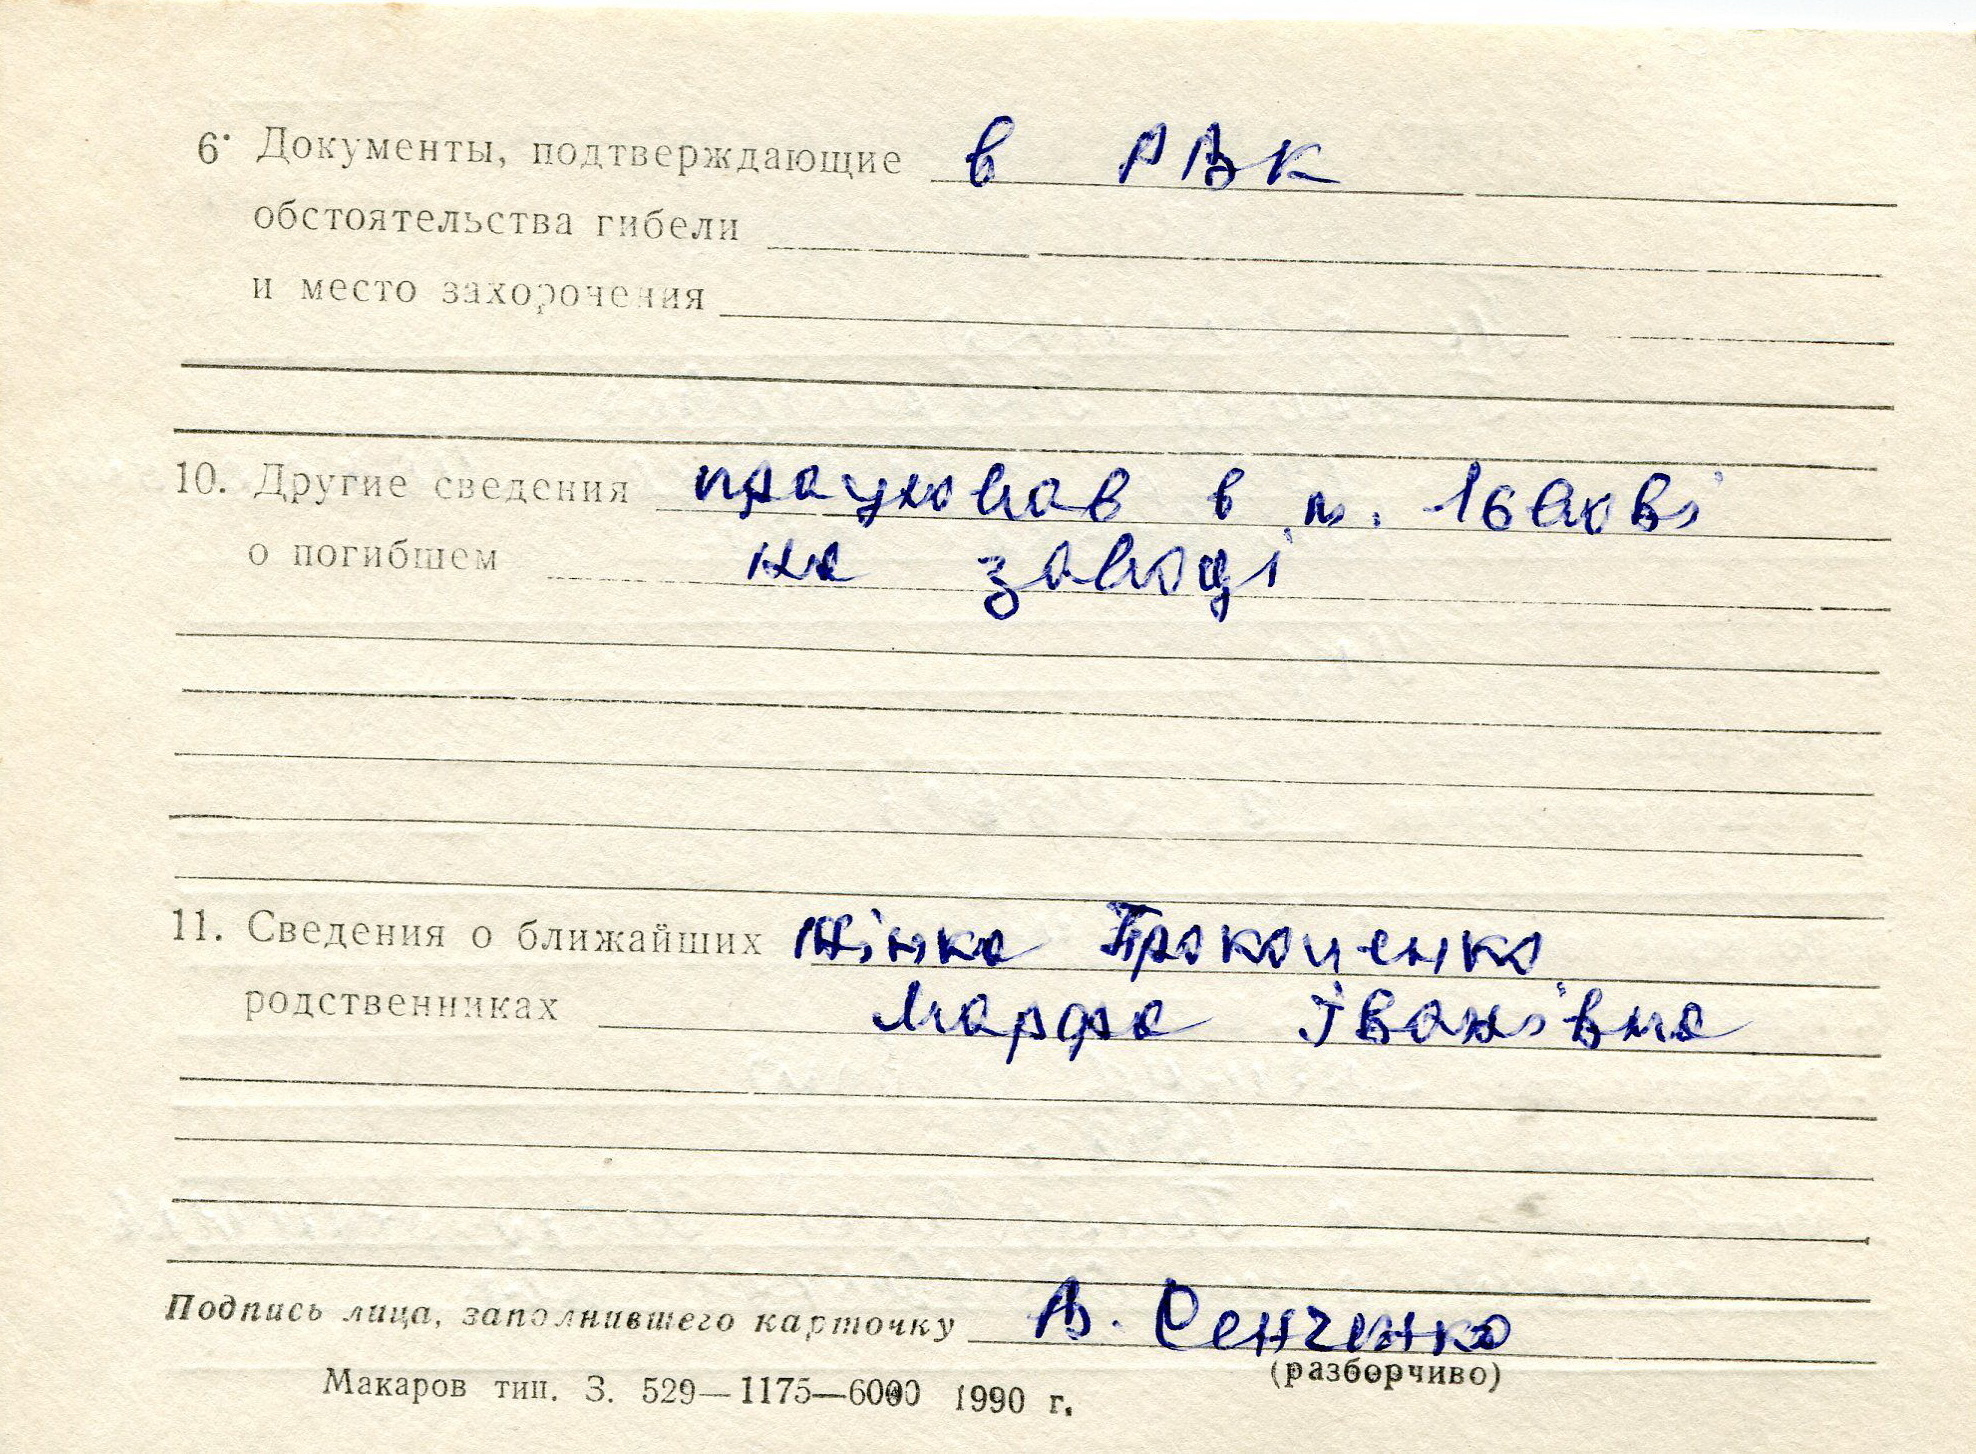 6. Документы, подтверждающие в РВК
обстоятельства гибели
и место захорочения
10. Другие сведения працював в м.
о погибшем на заводі
11. Сведения о ближайших жінка Прокопенко
родственниках Марфа Іванівна
Подпись лица, заполнившего карточку В. Сенченко
(разборчиво)
Макаров тип. З. 529—1175—6000 1990 г.